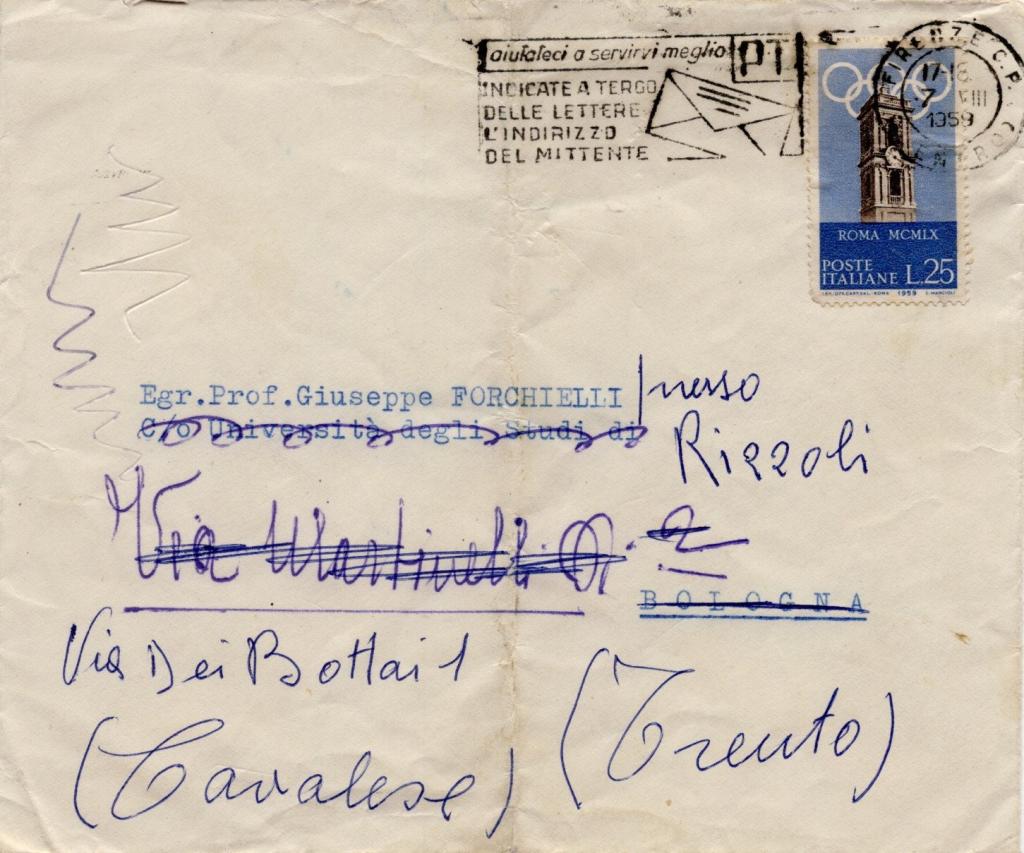 aiutateci a servirvi meglio PT
INDICATE A TERGO
DELLE LETTERE
L'INDIRIZZO
DEL MITTENTE
FIRENZE C.P.
17-18
7 VIII
1959
ROMA MCMLX
POSTE
ITALIANE L.25
1959
Egr.Prof.Giuseppe FORCHIELLI presso
C/o Università degli Studi di Rizzoli
Via Martinelli 2
BOLOGNA
Via Dei Bottai 1
(Cavalese) (Trento)